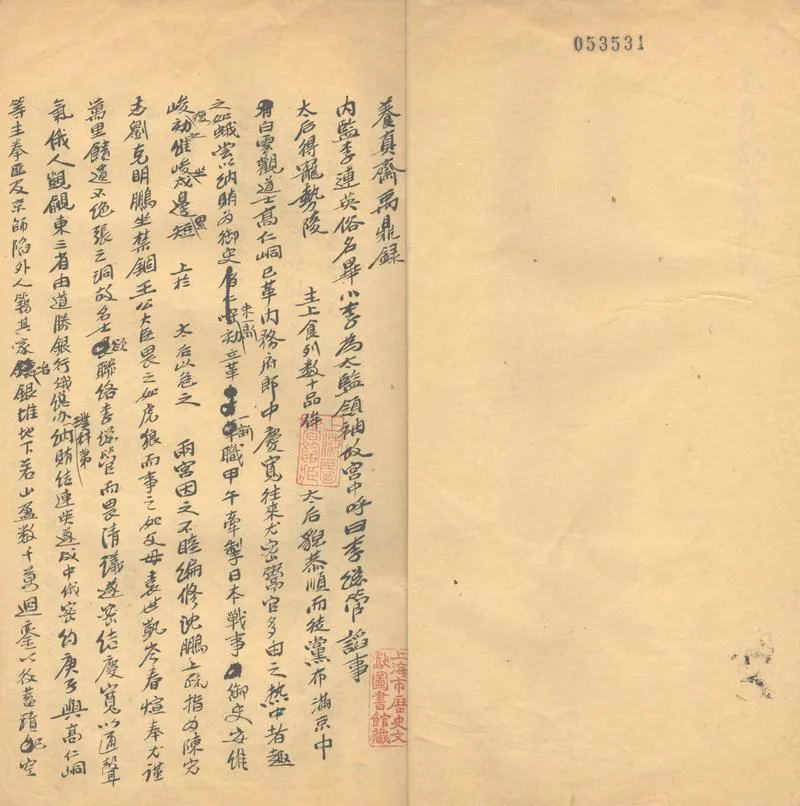 053531
養真齋禹鼎録
内監李連英俗名畢小李為太監領袖故宫中呼曰李總管諂事
太后得寵勢陵 主上食列数十品侔 太后貎恭順而徒黨布滿京中
有白雲觀道士高仁峒已革内務府郎中慶寬往来尤密鬻官多由之熱中者趨
之如蛾嘗以納賄為御史朱一新劾立革一新職甲午牽掣日本戰事御史安維
峻劾維峻戍邊 上於 太后以危之 兩宫因之不睦編修沈鵬上疏指為陳宏
志劉克明鵬坐禁錮王公大臣畏之如虎狼而事之如父母袁世凱岑春煊奉尤謹
萬里饋遺不絶張之洞故名士欲聯络李總管而畏清議遂密结慶寬以通聲
氣俄人覬覦東三省由道勝銀行璞科第納賄结連英遂成中俄密约庚子與高仁峒
等主拳匪及京師陷外人籍其家冶銀堆地下若山盈数千萬迴鑾以後蓄積空
上海市歷史文獻圖書館藏